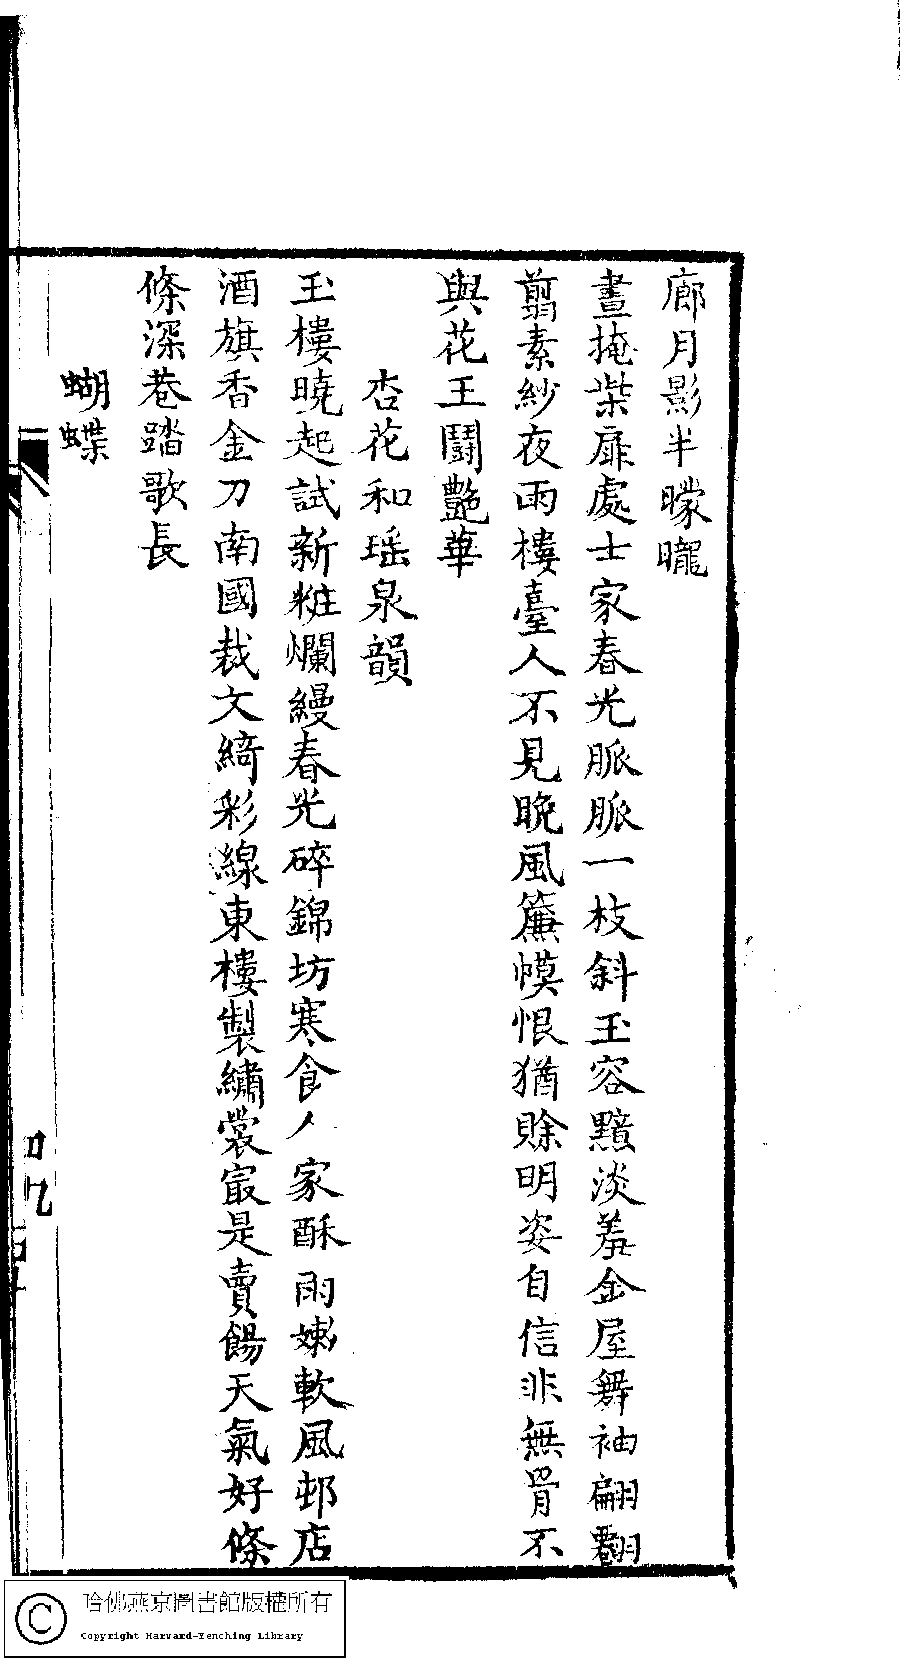 廊月影半矇矓
晝掩柴扉處士家春光脈脈一枝斜玉容黯淡羞金屋舞袖翩翻
翦素紗夜雨樓臺人不見晚風簾幙恨猶賒明姿自信非無骨不
與花王鬪艷華
杏花和瑤泉韻
玉樓曉起試新粧爛縵春光碎錦坊寒食人家酥雨嫩軟風邨店
酒旗香金刀南國裁文綺彩線東樓製繡裳㝡是賣餳天氣好條
條深巷踏歌長
蝴蝶
哈佛燕京圖書館版權所有
Copyright Harvard-Yenching Library